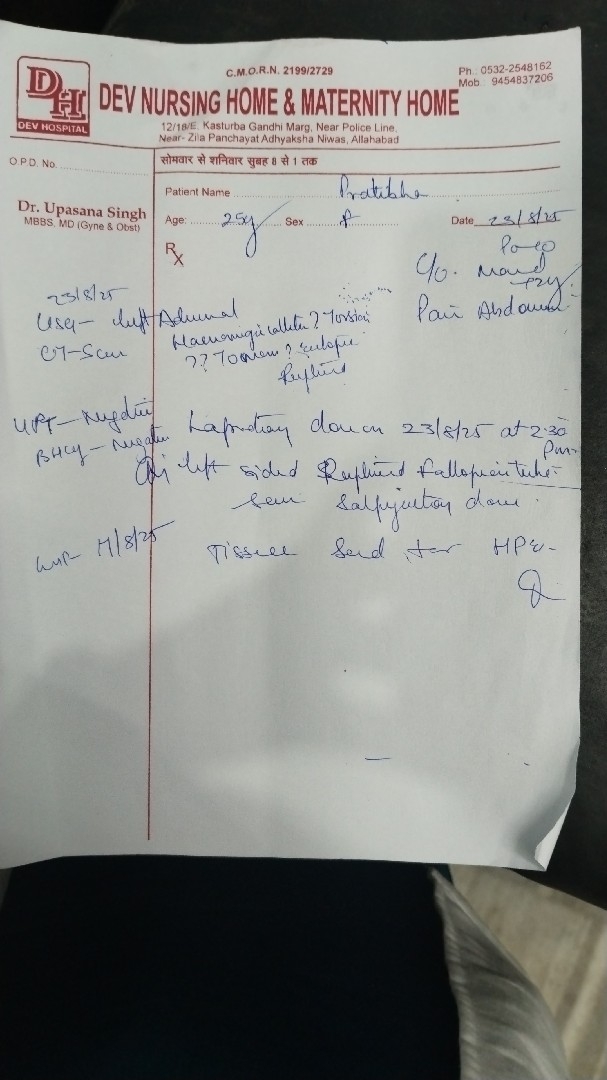 C.M.O.R.N. 2199/2729
Ph.: 0532-2548162
Mob.: 9454837206
DH
DEV HOSPITAL
DEV NURSING HOME & MATERNITY HOME
12/18/E, Kasturba Gandhi Marg, Near Police Line,
Near- Zila Panchayat Adhyaksha Niwas, Allahabad
O.P.D. No.
सोमवार से शनिवार सुबह 8 से 1 तक
Dr. Upasana Singh
MBBS, MD (Gyne & Obst)
Patient Name Pratibha
Age: 25y Sex f Date 23/8/25
Rx
P0+0
C/o.
Pain Abdomen
23/8/25
USG- left Adnexal
CT-Scan Haemorrhagic ? Torsion
?? ? Ectopic
Ruptured
UPT- Negative
BHCG- Negative
Laprotomy done on 23/8/25 at 2:30 Pm
left sided Ruptured fallopian tube-
Salpingectomy done.
LMP- 17/8/25
Tissue Send for HPE-